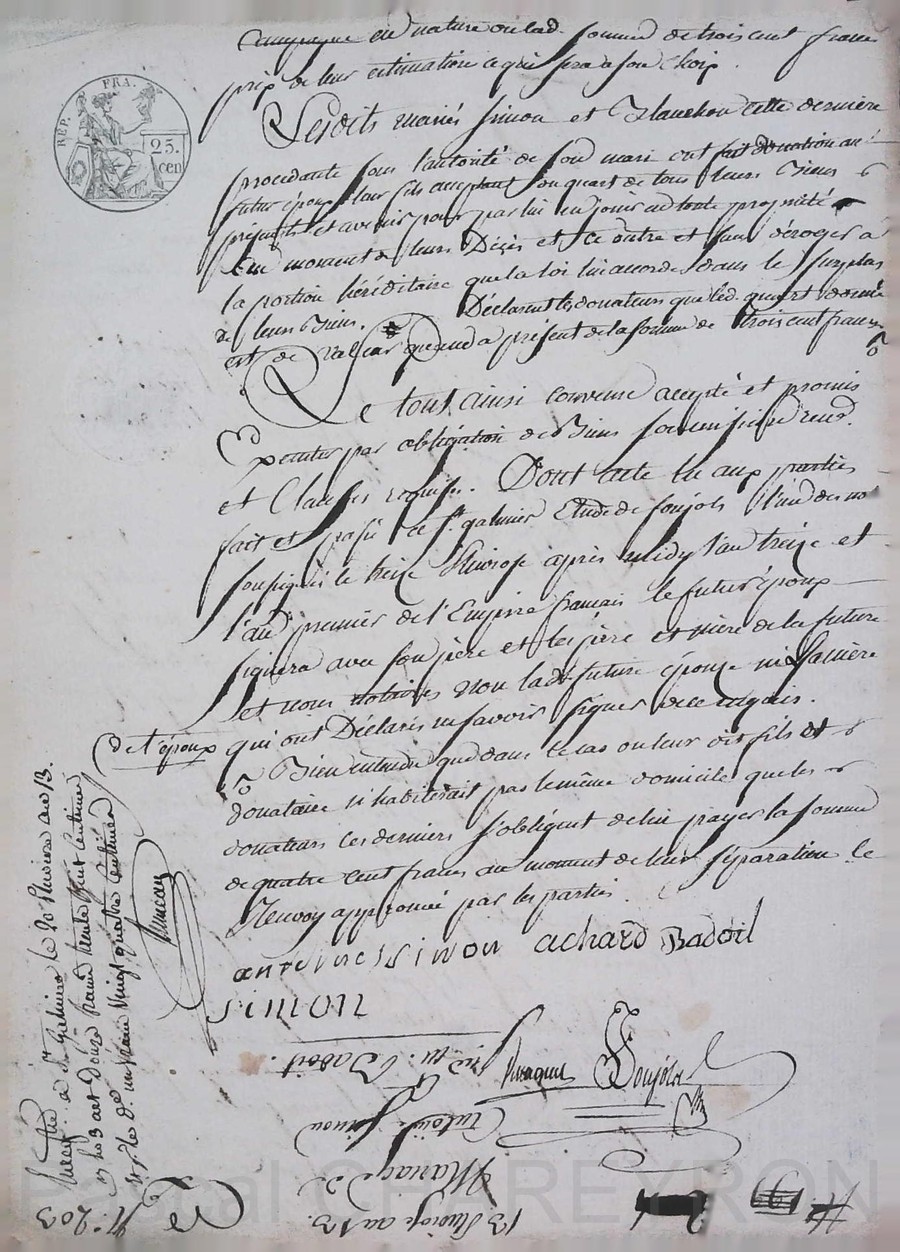 Campagne en nature ou lad. somme de trois cent francs
prix de leur estimation ce qui sera a son choix.
REP. FRA.
25.
cen
Lesdits mariés Simon et Blanchon cette dernière
procédante sous l'autorité de son mari ont fait donation au
futur époux leur fils acceptant du quart de tous leurs Biens
présents et avenir pour par lui en jouir en toute propriété
au moment de leurs Décès et ce outre et sans déroger a
la portion héréditaire que la loi lui accorde dans le surplus
de leurs Biens. Déclarent les donateurs que led. quart donné
est de valeur quand a présent de la somme de trois cent francs
Le tout ainsi convenu accepté et promis
Exécuter par obligation de Biens soumission rend.
et Clauses requises. Dont acte lu aux parties
fait et passé a St. galmier Etude de foujols l'un des no.
soussignés le treize Pluviose après midy l'an treize et
l'an premier de l'Empire francais le futur époux
signera avec son père et les père et mère de la future
et nous notaires non lad. future épouse ni la mère
de l'époux
qui ont Déclarés ne savoir signer de ce enquis.
Bien entendu que dans le cas ou leur dit fils et
donataire n'habiterait pas le même domicile que les
donateurs ces derniers s'obligent de lui payer la somme
de quatre cent francs au moment de leur séparation le
Renvoy approuvé par les parties.
antoine simon achard Badoil
simon
punaquer Foujols
Enregistré a St. Galmier le 20 Pluviose an 13.
Reçu douze francs trente huit centimes
un franc Vingt quatre Centimes
N.° 203
13 Pluviose an 13.
Mariage
Antoine Simon
&
M. Badoil
Pascal CHAREYRON